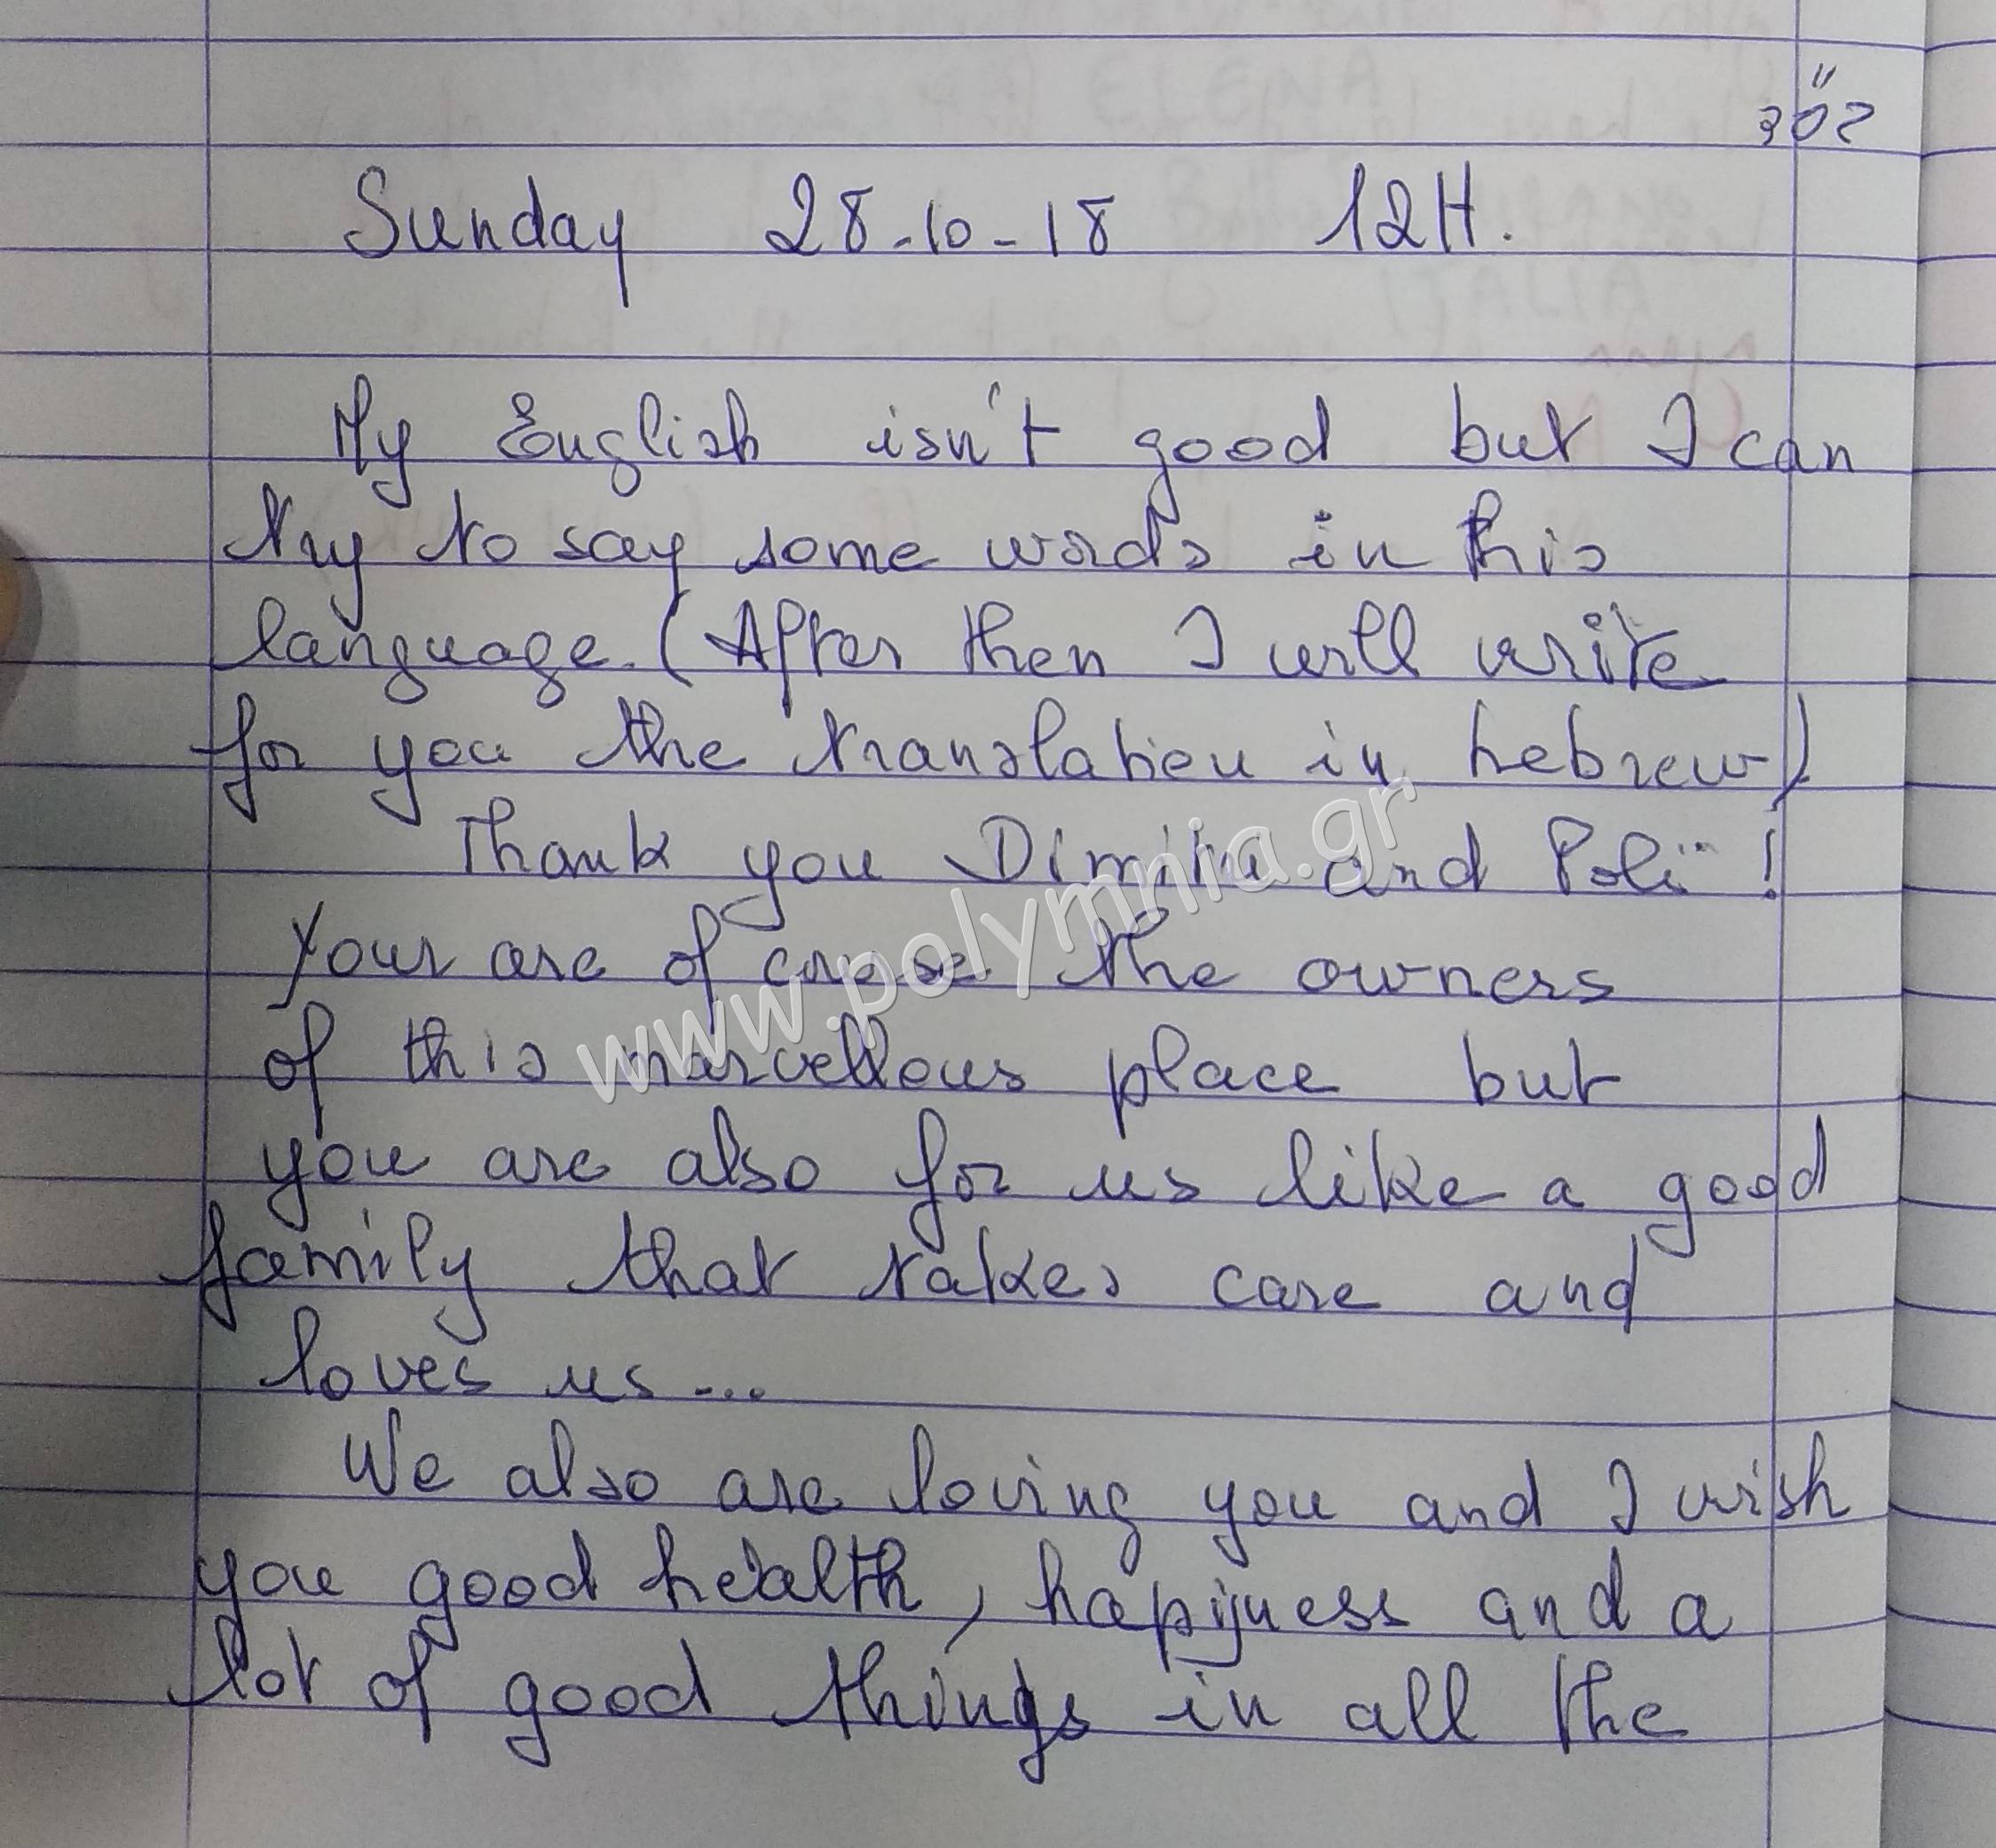 בס"ד
Sunday 28-10-18 12H.
My English isn't good but I can
try to say some words in this
language. (After then I will write
for you the translation in hebrew)
Thank you Dimitra and Poli!
Your are of corse the owners
of this marvellous place but
you are also for us like a good
family that takes care and
loves us...
We also are loving you and I wish
you good health, hapiyness and a
lot of good things in all the
www.polymnia.gr